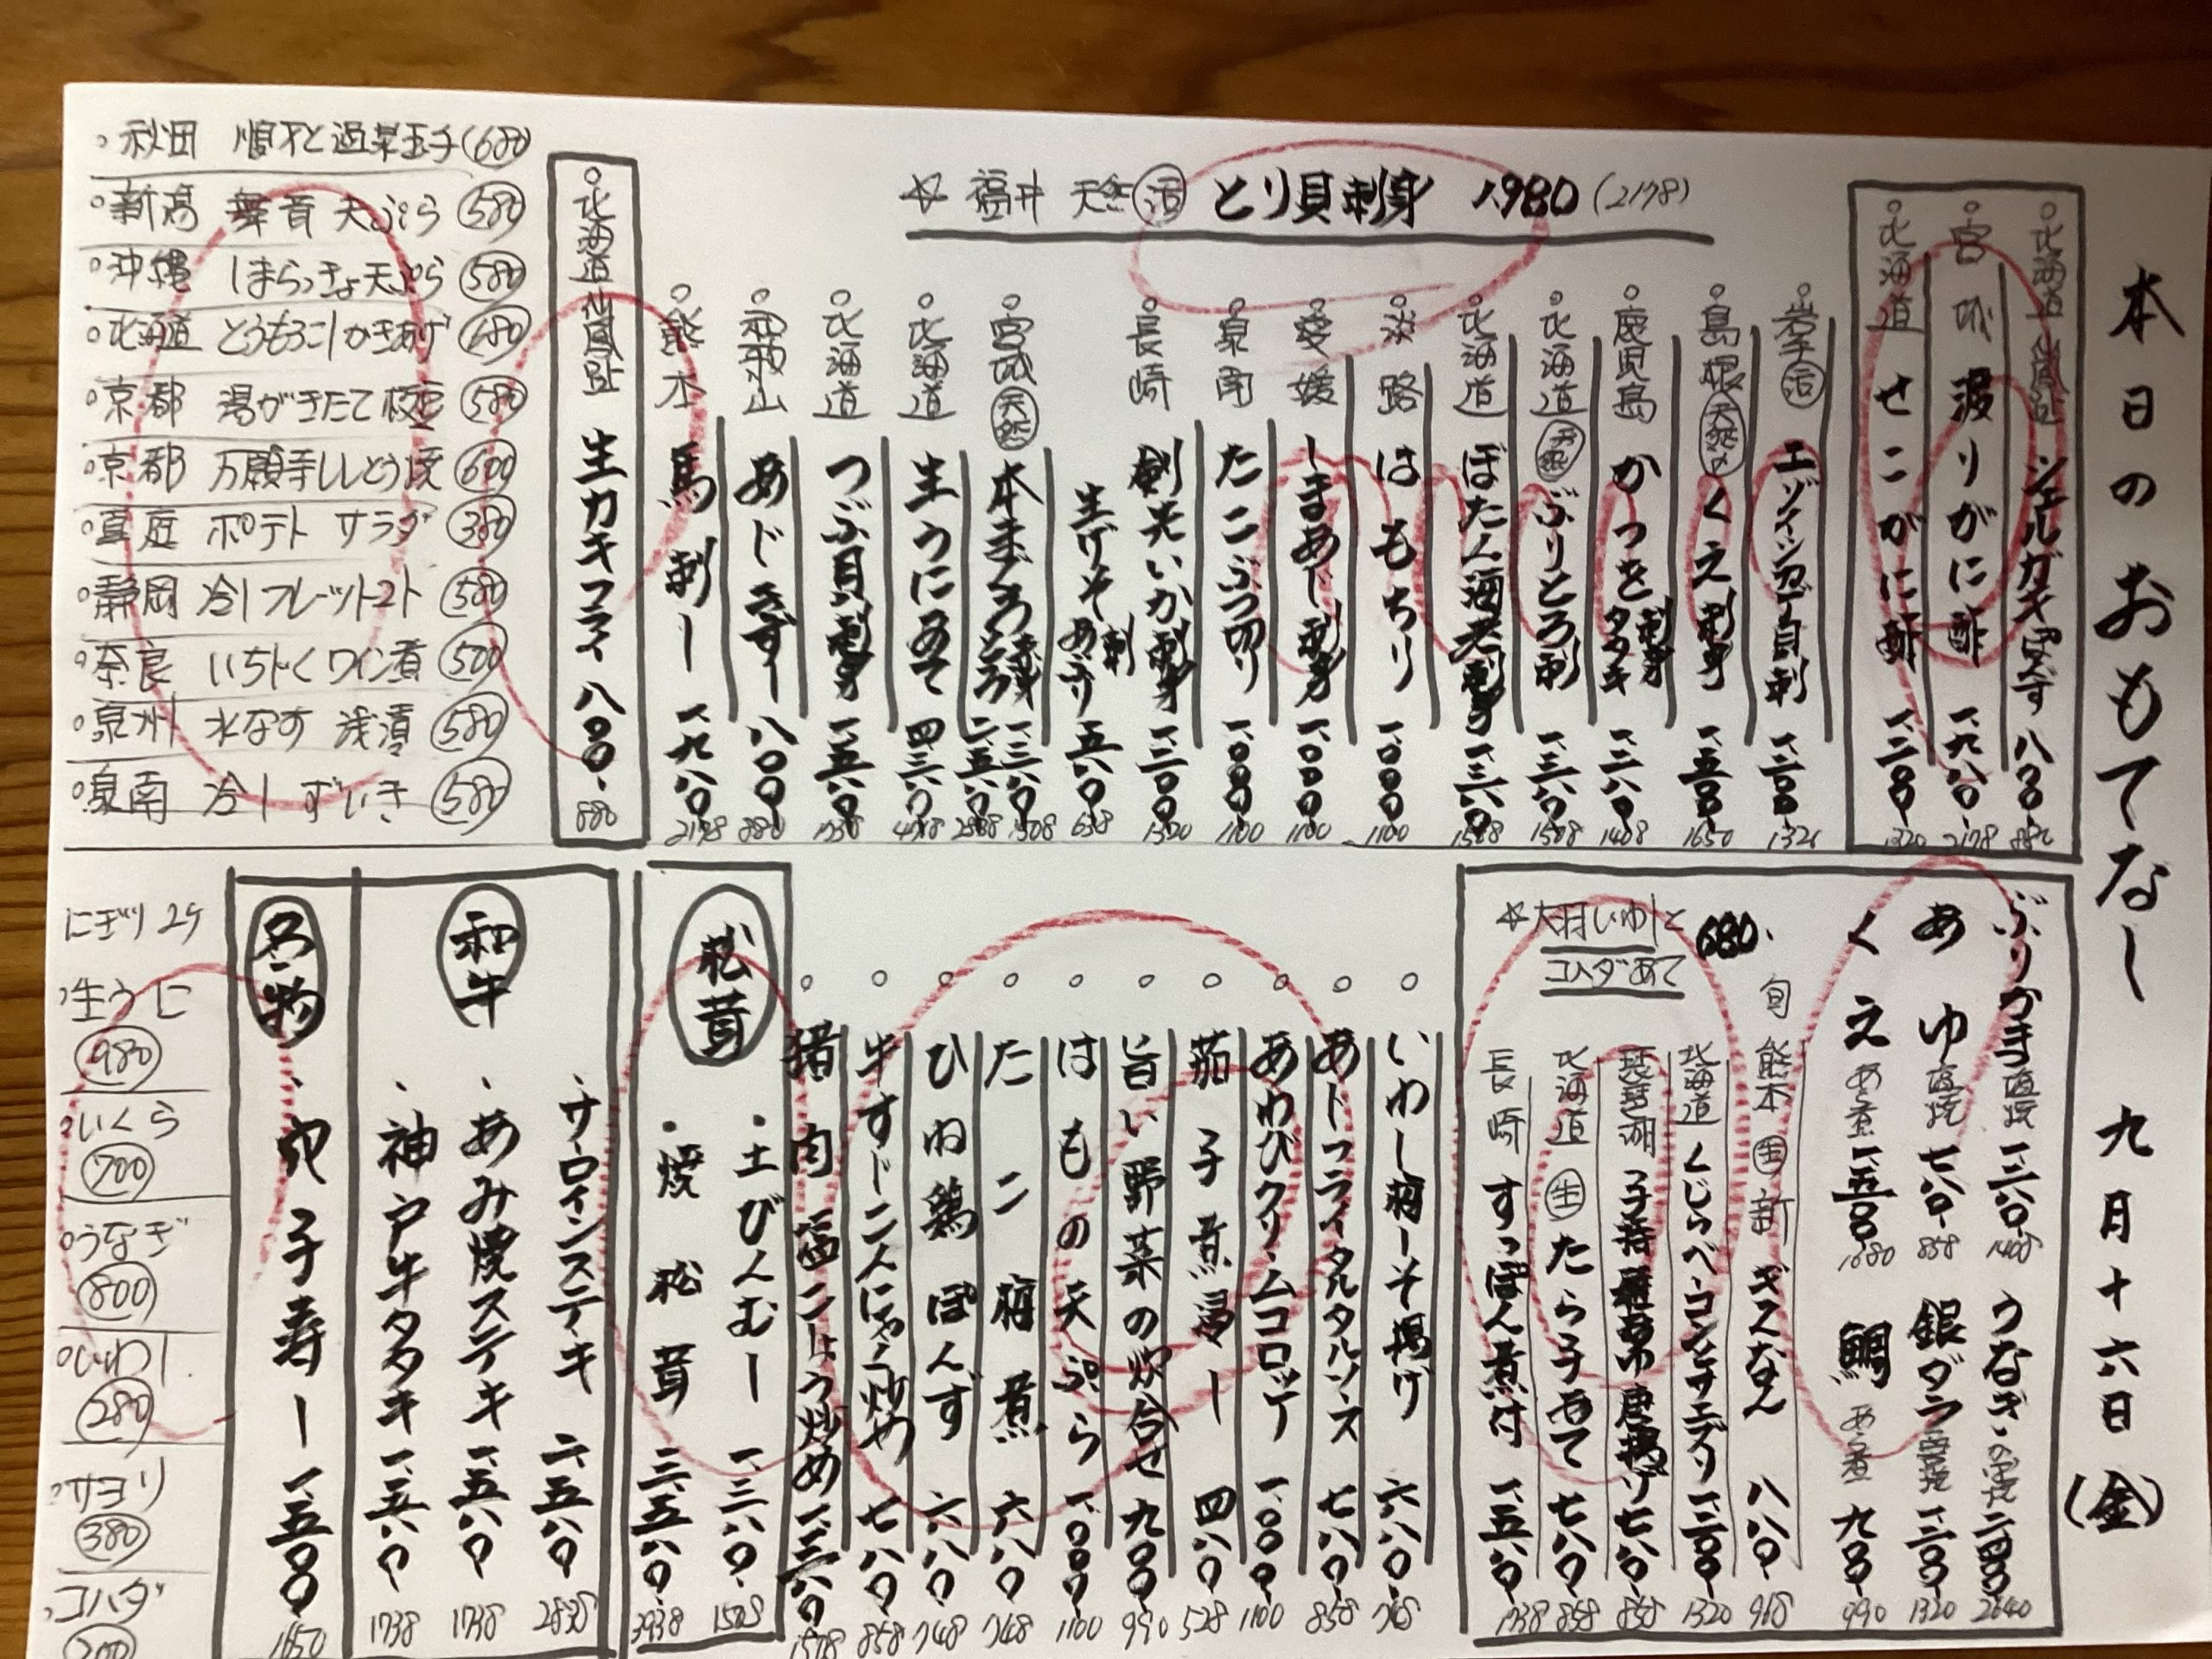 本日のおもてなし 九月十六日(金)
☆福井 天然 活 とり貝刺身 1.980 (2178)
北海道 仙鳳趾 シェルガキぽんず 八〇〇 880
宮城 渡りがに酢 一、九八〇 2178
北海道 せこがに酢 一、二〇〇 1320
岩手 活 エゾイシカゲ貝刺 一、二〇〇 132
島根 天然 くえ刺身 一、五〇〇 1650
鹿児島 かつを 刺身 タタキ 一、二八〇 1408
北海道 天然 ぶりとろ刺 一、三八〇 1508
北海道 ぼたん海老刺身 一、三八〇 1508
淡路 はもちり 一、〇〇〇 1100
愛媛 しまあじ刺身 一、〇〇〇 1100
泉南 たこぶつ切り 一、〇〇〇 1100
長崎 剣先いか刺身 一、二〇〇 1320
生げそ 刺 あぶり 五八〇 638
宮城 天然 本まぐろ 一、三八〇 1508 とろ 二、五八〇
北海道 生うにあて 四、三八〇
北海道 つぶ貝刺身 一、五八〇 1738
和歌山 あじきずし 八〇〇 880
熊本 馬刺し 一、九八〇 2178
北海道 仙鳳趾 生カキフライ 八〇〇 880
秋田 燻不と過半玉子 680
新潟 舞茸天ぷら 580
沖縄 しまらっきょ天ぷら 580
北海道 とうもろこしかきあげ 680
京都 湯がきたて枝豆 580
京都 万願寺ししとう焼 600
真庭 ポテトサラダ 380
静岡 冷しフルーツトマト 580
奈良 いちじくワイン煮 500
泉州 水なす 浅漬 580
泉南 冷しずいき 580
ぶりかま 塩焼 一、二八〇 1408
うなぎ 二、四〇〇 2640
あゆ 塩焼 七八〇 858
銀ダラ 一、二〇〇 1320
くえ あら煮 一、五〇〇
鯛 あら煮 九〇〇 990
旬 熊本 生 新ギンなん 八八〇 968
☆大村いわしと コハダあて 680
北海道 くじらベーコンサエズリ 一、二〇〇 1320
琵琶湖 子持 唐揚げ 七八〇 858
北海道 生 たら子あて 七八〇 858
長崎 すっぽん煮付 一、五八〇 1738
いわし梅しそ揚げ 六八〇 748
あじフライタルタルソース 七八〇 858
あわびクリームコロッケ 一、〇〇〇 1100
茄子煮浸し 四八〇 528
旨い野菜の炊合せ 九〇〇 990
はもの天ぷら 一、〇〇〇 1100
たこ梅煮 六八〇 748
ひね鶏ぽんず 六八〇 748
牛すじこんにゃく炒め 七八〇 858
猪肉 塩こしょう炒め 一、三八〇 1508
松茸
・土びんむし 一、三八〇
・焼松茸 三、五八〇 3938
和牛
・サーロインステーキ 二、五八〇 2838
・あみ焼ステーキ 一、五八〇 1738
・神戸牛タタキ 一、五八〇 1738
名物
・穴子寿し 一、五〇〇 1650
にぎり 2ケ
生うに 980
いくら 700
うなぎ 800
いわし 280
サヨリ 380
コハダ 200